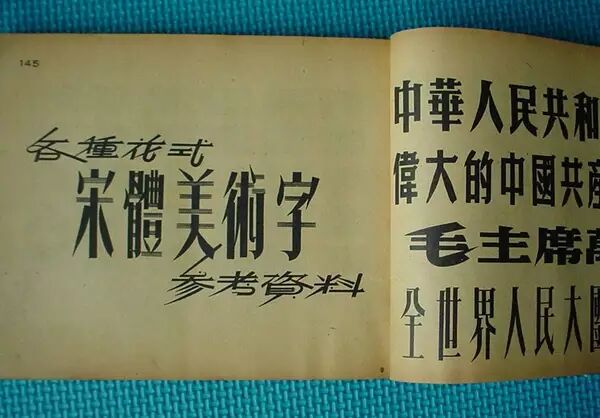 145
各種花式
宋體美術字
参考資料
中華人民共和
偉大的中國共産
毛主席萬
全世界人民大團